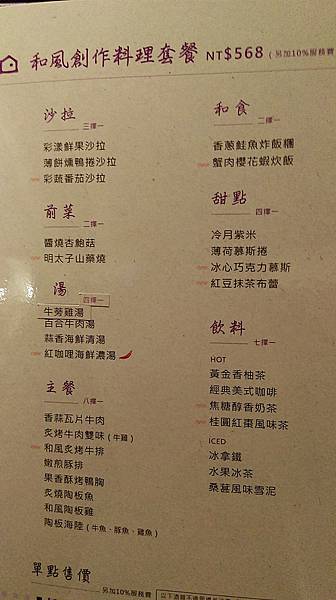 和風創作料理套餐 NT$568 ( 另加10%服務費
沙拉
三擇一
彩漾鮮果沙拉
薄餅燻鴨捲沙拉
彩蔬番茄沙拉
前菜
二擇一
醬燒杏鮑菇
明太子山藥燒
湯
四擇一
牛蒡雞湯
百合牛肉湯
蒜香海鮮清湯
紅咖哩海鮮濃湯
主餐
八擇一
香蒜瓦片牛肉
炙烤牛肉雙味 ( 牛雞 )
和風炙烤牛排
嫩煎豚排
果香酥烤鴨胸
炙燒陶板魚
和風陶板雞
陶板海陸 ( 牛魚、豚魚、雞魚 )
和食
二擇一
香蔥鮭魚炸飯糰
蟹肉櫻花蝦炊飯
甜點
四擇一
冷月紫米
薄荷慕斯捲
冰心巧克力慕斯
紅豆抹茶布蕾
飲料
七擇一
HOT
黃金香柚茶
經典美式咖啡
焦糖醇香奶茶
桂圓紅棗風味茶
ICED
冰拿鐵
水果冰茶
桑葚風味雪泥
單點售價
另加10%服務費